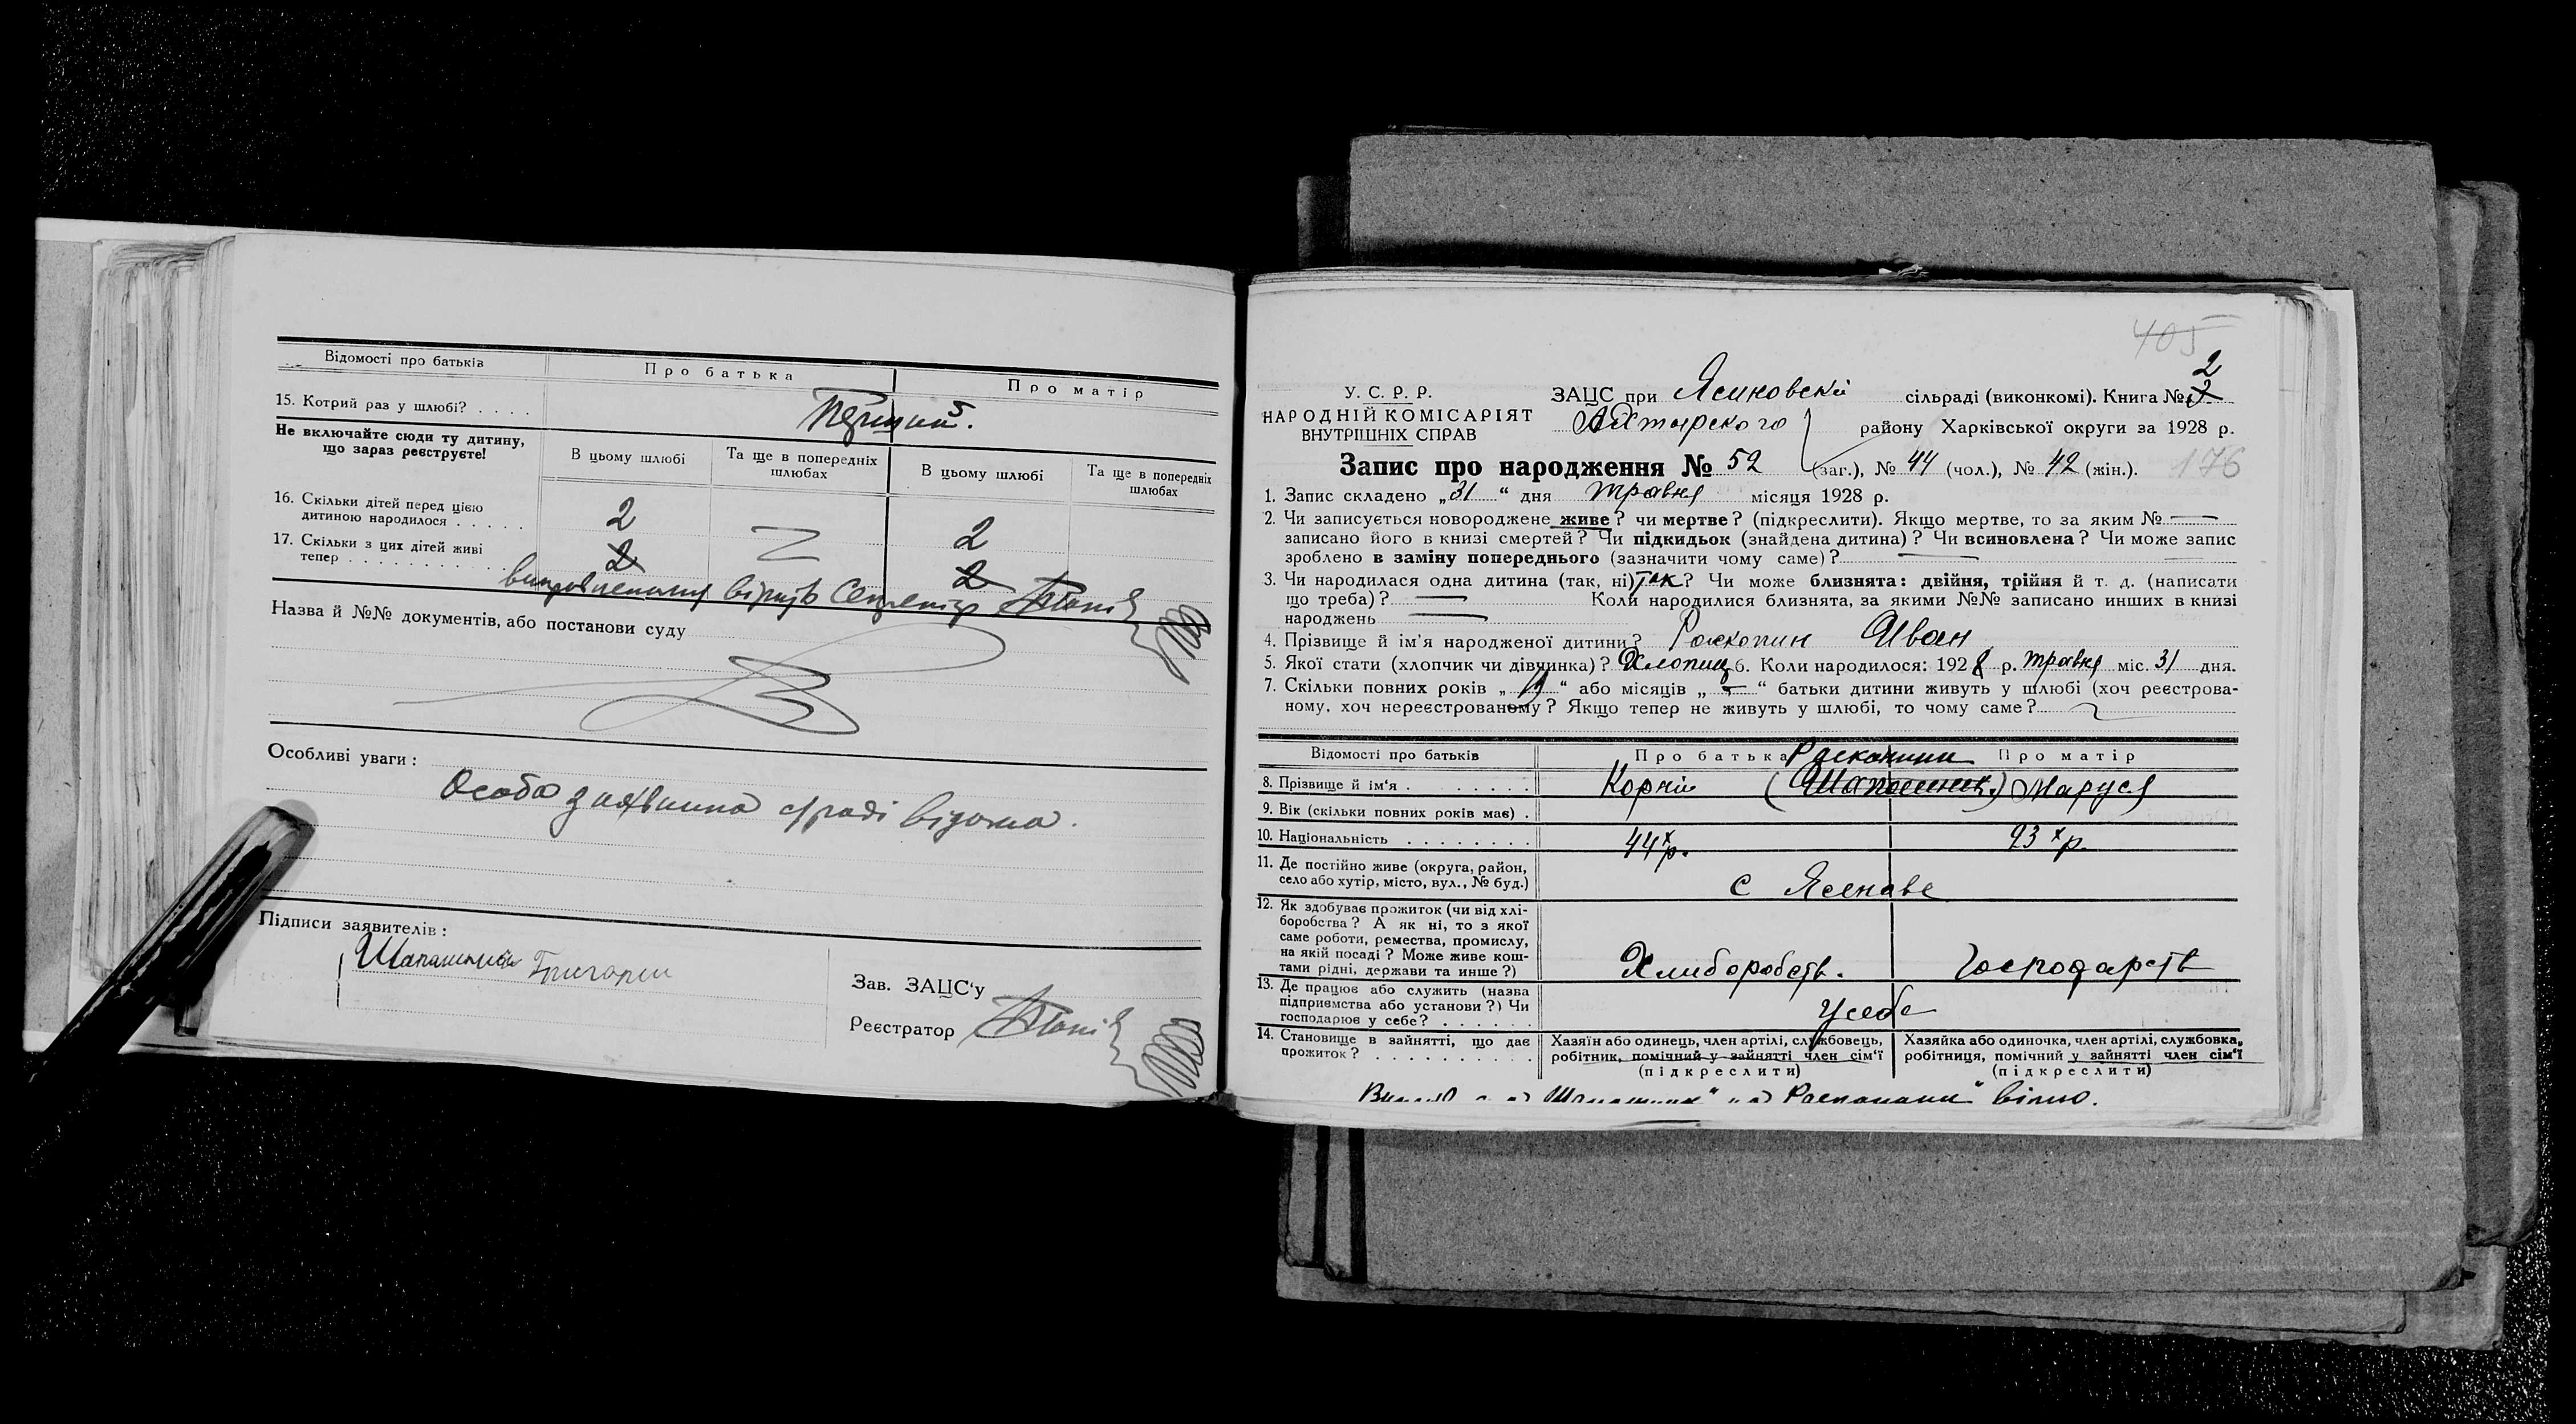 Відомості про батьків
Про батька
Про матір
15. Котрий раз у шлюбі? . . . .
Перший.
Не включайте сюди ту дитину,
що зараз реєструєте!
В цьому шлюбі
Та ще в попередніх
шлюбах
В цьому шлюбі
Та ще в попередніх
шлюбах
16. Скільки дітей перед цією
дитиною народилося . . . . .
2
2
17. Скільки з цих дітей живі
тепер . . . . . . . . . . .
2
2
Назва й №№ документів, або постанови суду
Особливі уваги:
Особа заявника с/раді відома.
Підписи заявителів:
Шапашник Григорій
Зав. ЗАЦС'у
Реєстратор
405
2
У. С. Р. Р.
НАРОДНІЙ КОМІСАРІЯТ
ВНУТРІШНІХ СПРАВ
ЗАЦС при Ясиновскій сільраді (виконкомі). Книга №
Ахтирского району Харківської округи за 1928 р.
Запис про народження № 52 (заг.), № 44 (чол.), № 42 (жін.). 176
1. Запис складено „31“ дня травня місяця 1928 р.
2. Чи записується новороджене живе? чи мертве? (підкреслити). Якщо мертве, то за яким №
записано його в книзі смертей? Чи підкидьок (знайдена дитина)? Чи всиновлена? Чи може запис
зроблено в заміну попереднього (зазначити чому саме)?
3. Чи народилася одна дитина (так, ні) так? Чи може близнята: двійня, трійня й т. д. (написати
що треба)? Коли народилися близнята, за якими №№ записано инших в книзі
народжень
4. Прізвище й ім'я народженої дитини? Раскопин Иван
5. Якої стати (хлопчик чи дівчинка)? Хлопиц 6. Коли народилося: 1928 р. травня міс. 31 дня.
7. Скільки повних років „ “ або місяців „ “ батьки дитини живуть у шлюбі (хоч реєстрова-
ному, хоч нереєстрованому? Якщо тепер не живуть у шлюбі, то чому саме?
Відомості про батьків
Про батька
Раскопини
Про матір
8. Прізвище й ім'я . . . . . . . .
Корній
(Шапашник) Маруся
9. Вік (скільки повних років має) .
10. Національність . . . . . . . .
44 р.
23 р.
11. Де постійно живе (округа, район,
село або хутір, місто, вул., № буд.)
с Ясенове
12. Як здобуває прожиток (чи від хлі-
боробства? А як ні, то з якої
саме роботи, ремества, промислу,
на якій посаді? Може живе кош-
тами рідні, держави та инше?)
Хлиборобств.
Господарств
13. Де працює або служить (назва
підприємства або установи?) Чи
господарює у себе? . . . . . .
У себе
14. Становище в зайнятті, що дає
прожиток? . . . . . . . . . .
Хазяїн або одинець, член артілі, службовець,
робітник, помічний у зайнятті член сім'ї
(підкреслити)
Хазяйка або одиночка, член артілі, службовка,
робітниця, помічний у зайнятті член сім'ї
(підкреслити)
вірно.